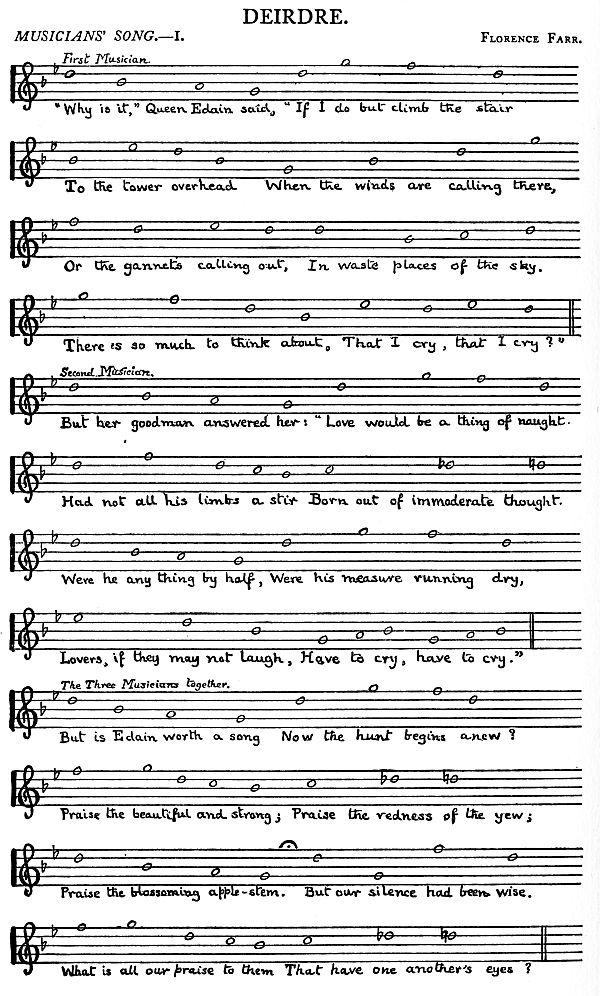 DEIRDRE.
MUSICIANS' SONG.—I. FLORENCE FARR.
First Musician.
"Why is it," Queen Edain said, "If I do but climb the stair
To the tower overhead When the winds are calling there,
Or the gannets calling out, In waste places of the sky.
There is so much to think about, That I cry, that I cry?"
Second Musician.
But her goodman answered her: "Love would be a thing of naught.
Had not all his limbs a stir Born out of immoderate thought.
Were he any thing by half, Were his measure running dry,
Lovers, if they may not laugh, Have to cry, have to cry."
The Three Musicians together.
But is Edain worth a song Now the hunt begins anew?
Praise the beautiful and strong; Praise the redness of the yew;
Praise the blossoming apple-stem. But our silence had been wise.
What is all our praise to them That have one another's eyes?